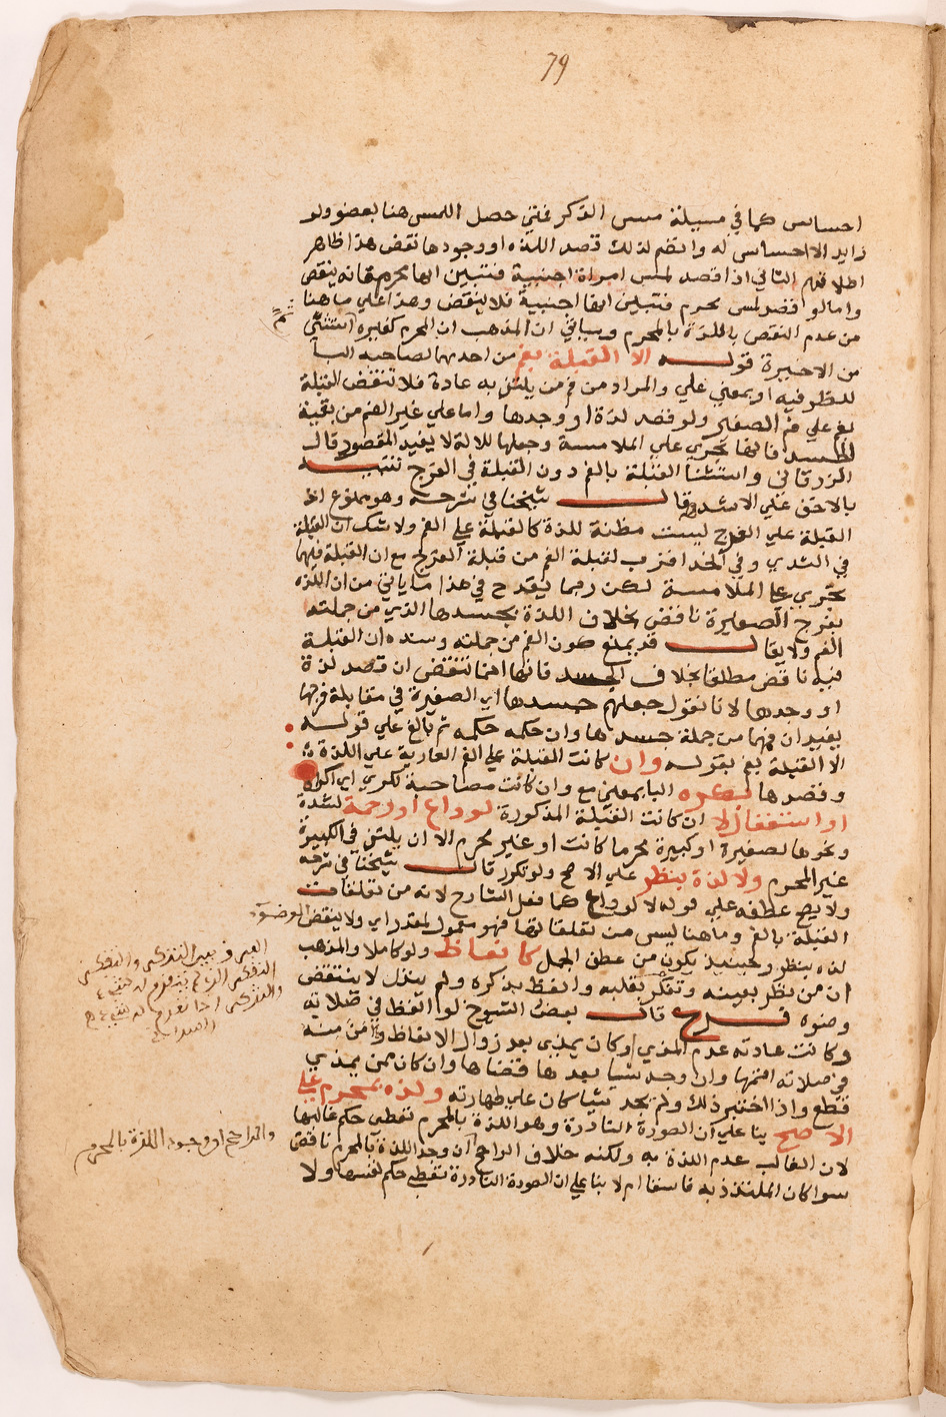 79
احساس كما في مسيلة مس الذكر فمتى حصل اللمس هنا بعضو ولو
زايد الا احساس له وانضم لذلك قصد اللذه او وجودها نقض هذا ظاهر
اطلاقهم الثاني اذا قصد لمس امراة اجنبية فتبين انها محرم فانه ينقض
واما لو قصد لمس محرم فتبين انها اجنبية فلا ينقض وهذا على ما هنا
من عدم النقض باللذة بالمحرم وسياتي ان المذهب ان المحرم كغيره استثنى
من الاخيرة قوله الا القبلة بفم من احدهما لصاحبه البا
للظرفيه او بمعني علي والمراد من فم من يلتذ به عادة فلا تنقض القبلة
بفم علي فم الصغير ولو قصد لذة او وجدها واما علي غير الفم من بقية
الجسد فانها تجري علي الملامسة وجعلها للالة لا يفيد المقصود قال
الزرقاني واستثنا القبلة بالفم دون القبلة في الفرج تنبيه
بالاخف علي الاشد قال شيخنا في شرحه وهو ممنوع اذ
القبلة علي الفرج ليست مظنة للذة كالقبلة علي الفم ولا شك ان القبلة
في الثدي وفي الخد اقرب لقبلة الفم من قبلة الفرج مع ان القبلة فيهما
تجري علي الملامسة لكن ربما يقدح في هذا ما ياتي من ان اللذه
بفرج الصغيرة ناقض بخلاف اللذة بجسدها الذي من جملته
الفم ولا يقال قد يمنع كون الفم من جملته وسنده ان القبلة
فيه ناقض مطلقا بخلاف الجسد فانها انما تنقض ان قصد لذة
او وجدها لانا نقول جعلهم جسدها اي الصغيرة في مقابلة فرجها
يفيد ان فمها من جملة جسدها وان حكمه حكمه ثم بالغ علي قوله
الا القبلة بفم بقوله وان كانت القبلة علي الفم العارية علي اللذة
وقصدها بكره البا بمعني مع وان كانت مصاحبة لكره اي اكراه
او استغفال لا ان كانت القبلة المذكورة لوداع او رحمة لشدة
ونحوها لصغيرة او كبيرة محرما كانت او غير محرم الا ان يلتذ في الكبيرة
غير المحرم ولا لذة بنظر علي الاصح ولو تكرر قال شيخنا في شرحه
ولا يصح عطفه علي قوله لا لوداع كما فعل الشارح لانه من تعلقات
القبلة بالفم وما هنا ليس من تعلقاتها فهو معمول لمقدر اي ولا ينقض الوضوء
لذه بنظر وحينيذ يكون من عطف الجمل كانعاظ ولو كاملا والمذهب
ان من نظر بعينه وتفكر بقلبه وانعظ بذكره ولم ينزل لا ينتقض
وضوه فرع قال بعض الشيوخ لو انعظ في صلاته
وكانت عادته عدم المذي او كان يمذي بعد زوال الانعاظ وامن منه
في صلاته اتمها وان وجد شيا بعدها قضاها وان كان ممن يمذي
قطع واذا اختبر ذلك ولم يجد شيا كان علي طهارته ولذه بمحرم علي
الاصح بنا علي ان الصورة النادرة وهو اللذة بالمحرم تعطى حكم غالبها
لان الغالب عدم اللذة به ولكنه خلاف الراجح ان وجد اللذة بالمحرم ناقض
سوا كان الملتذذ به فاسقا ام لا بنا علي ان الصورة النادرة تعطي حكم نفسها ولا
والراجح او وجود اللذة بالمحرم